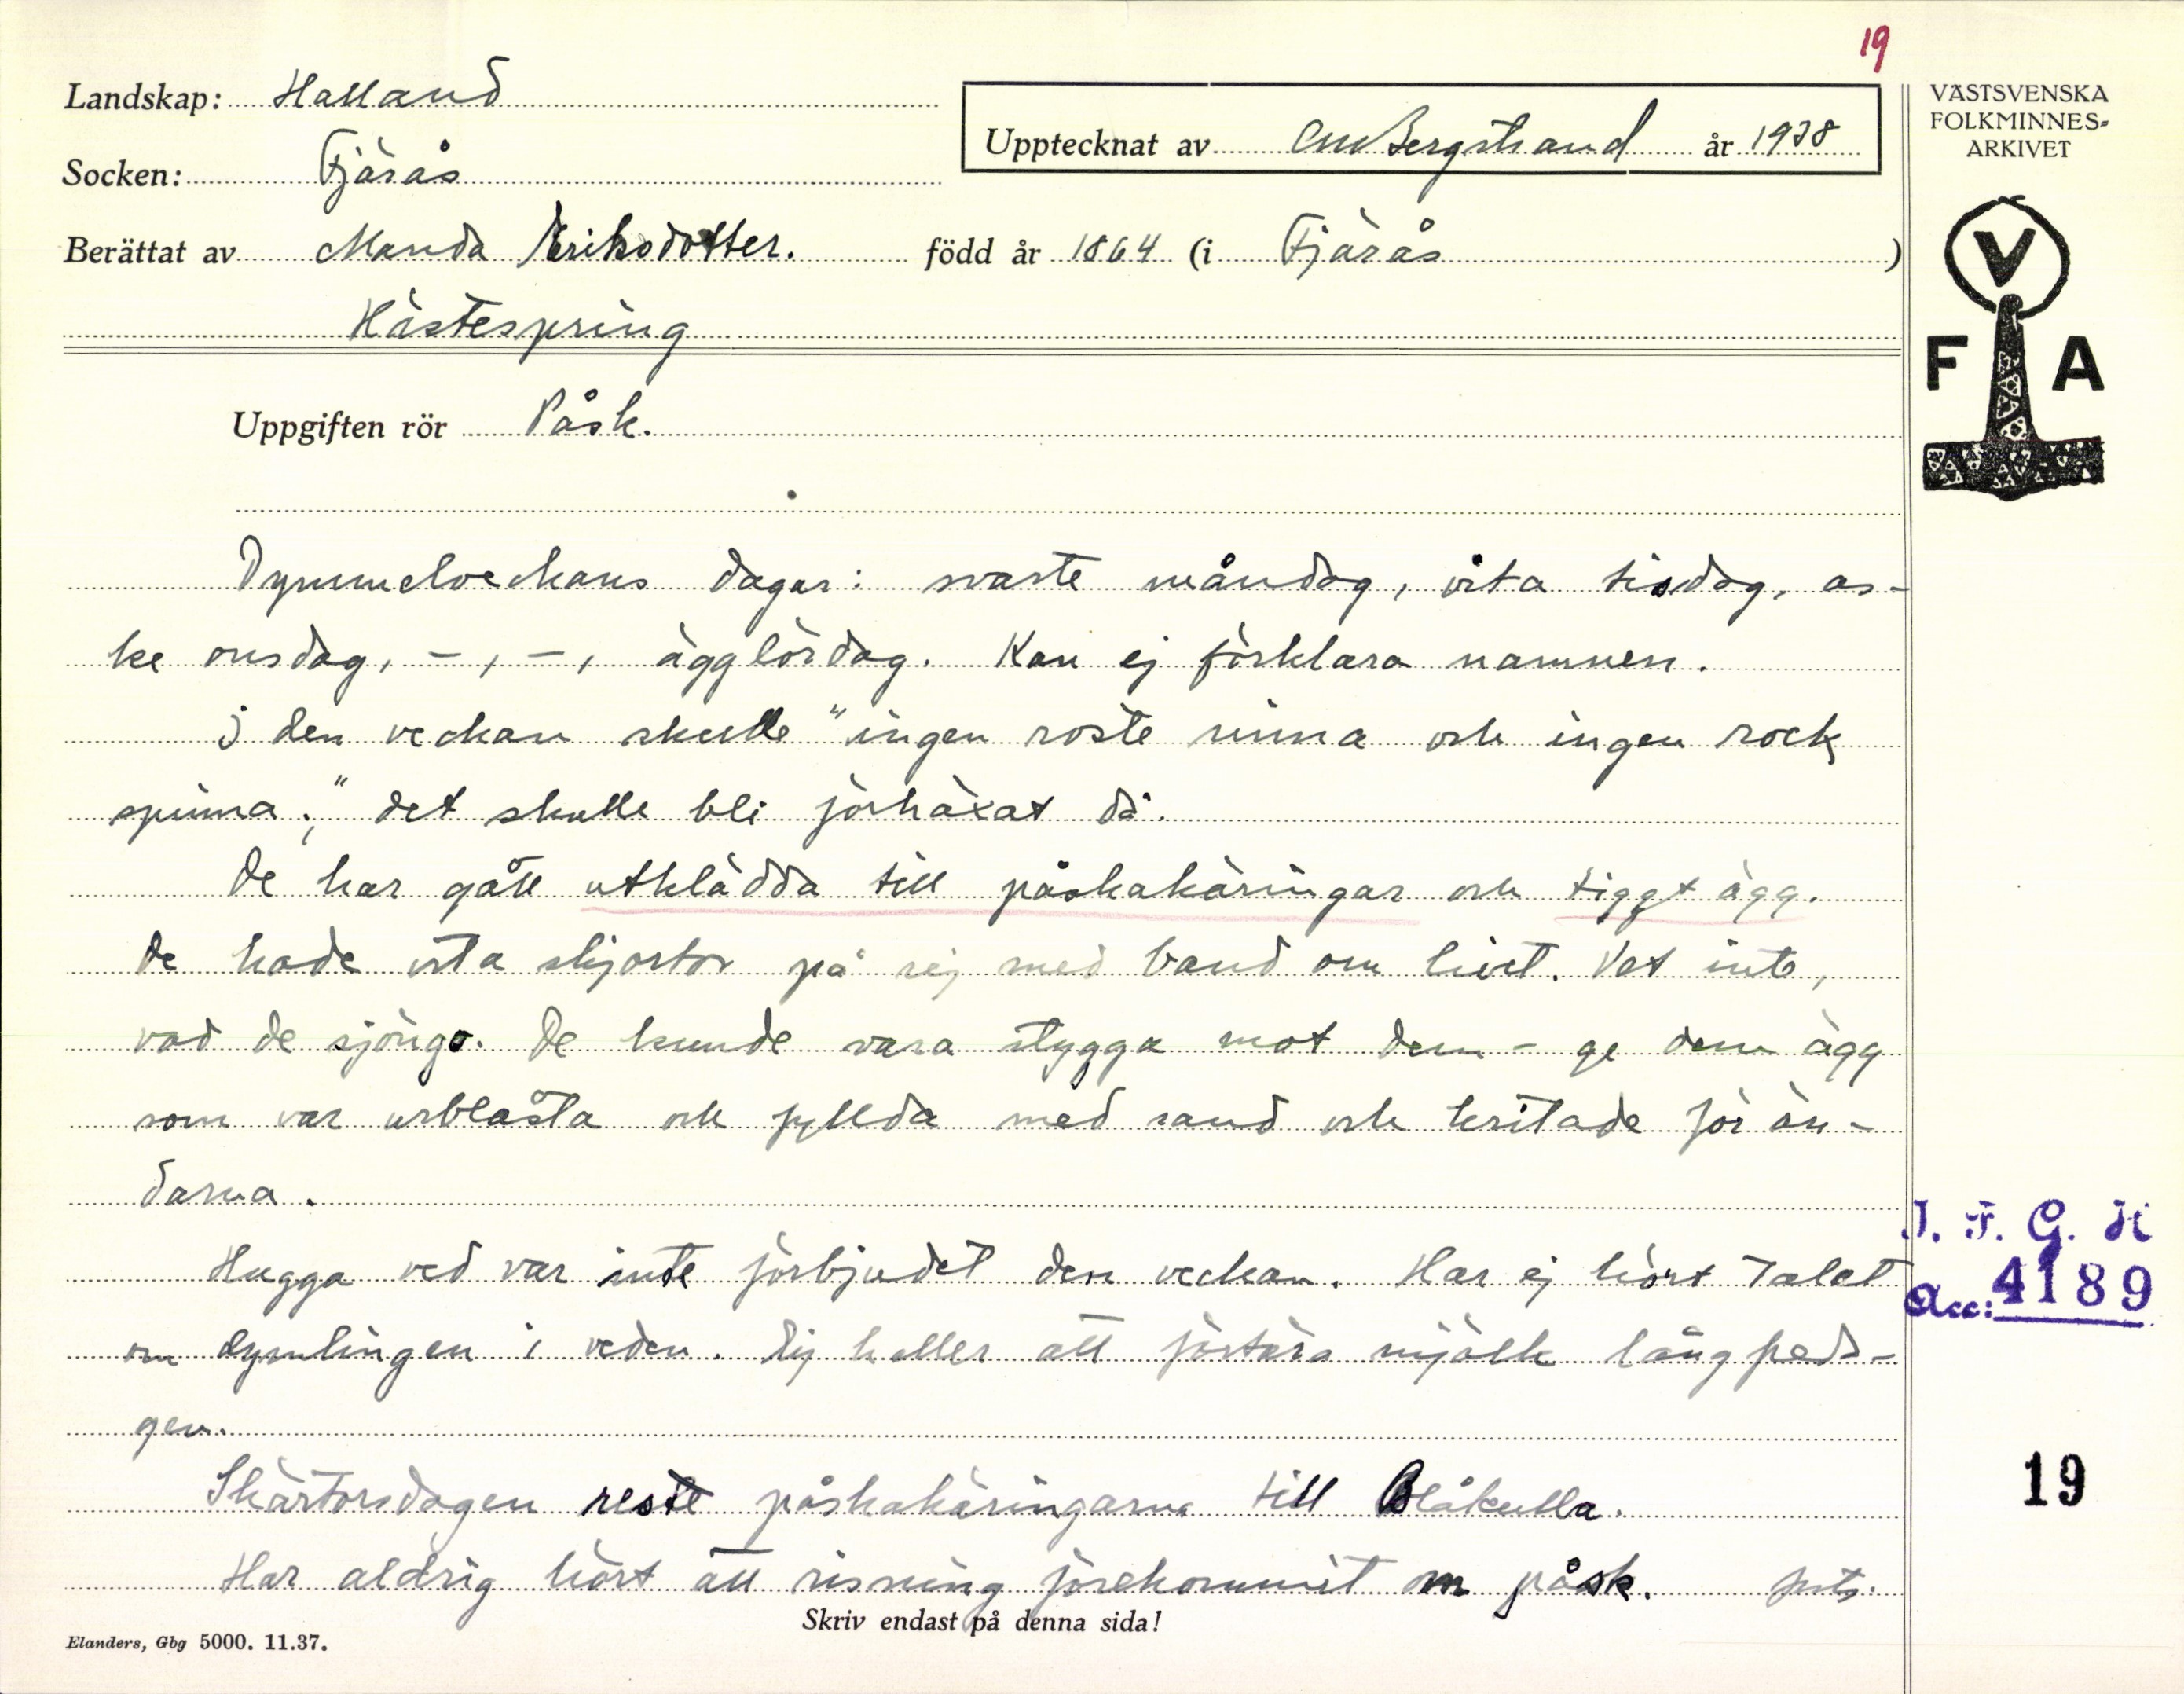 19
Landskap: Halland
Upptecknat av CM Bergstrand år 1938
Socken: Fjärås
Berättat av Manda Eriksdotter. född år 1864 (i Fjärås )
Hästespring
Uppgiften rör Påsk.
Dymmelveckans dagar: svarte måndag, vita tisdag, as-
ke onsdag, -, -, ägglördag. Kan ej förklara namnen.
I den veckan skulle "ingen roste rinna och ingen rock
spinna", det skulle bli förhäxat då.
De har gått utklädda till påskakäringar och tiggt ägg.
De hade vita skjortor på sej med band om livet. Vet inte,
vad de sjöngo. De kunde vara stygga mot dem - ge dem ägg
som var urblåsta och fyllda med sand och kritade för än-
darna.
Hugga ved var inte förbjudet den veckan. Har ej hört talat
om dymlingen i veden. Ej heller att förtära mjölk långfreda-
gen.
Skärtorsdagen reste påskakäringarna till Blåkulla.
Har aldrig hört att risning förekommit om påsk. forts.
Skriv endast på denna sida!
Elanders, Gbg 5000. 11.37.
VÄSTSVENSKA
FOLKMINNES-
ARKIVET
V
F A
I. F. G. H
Acc: 4189
19